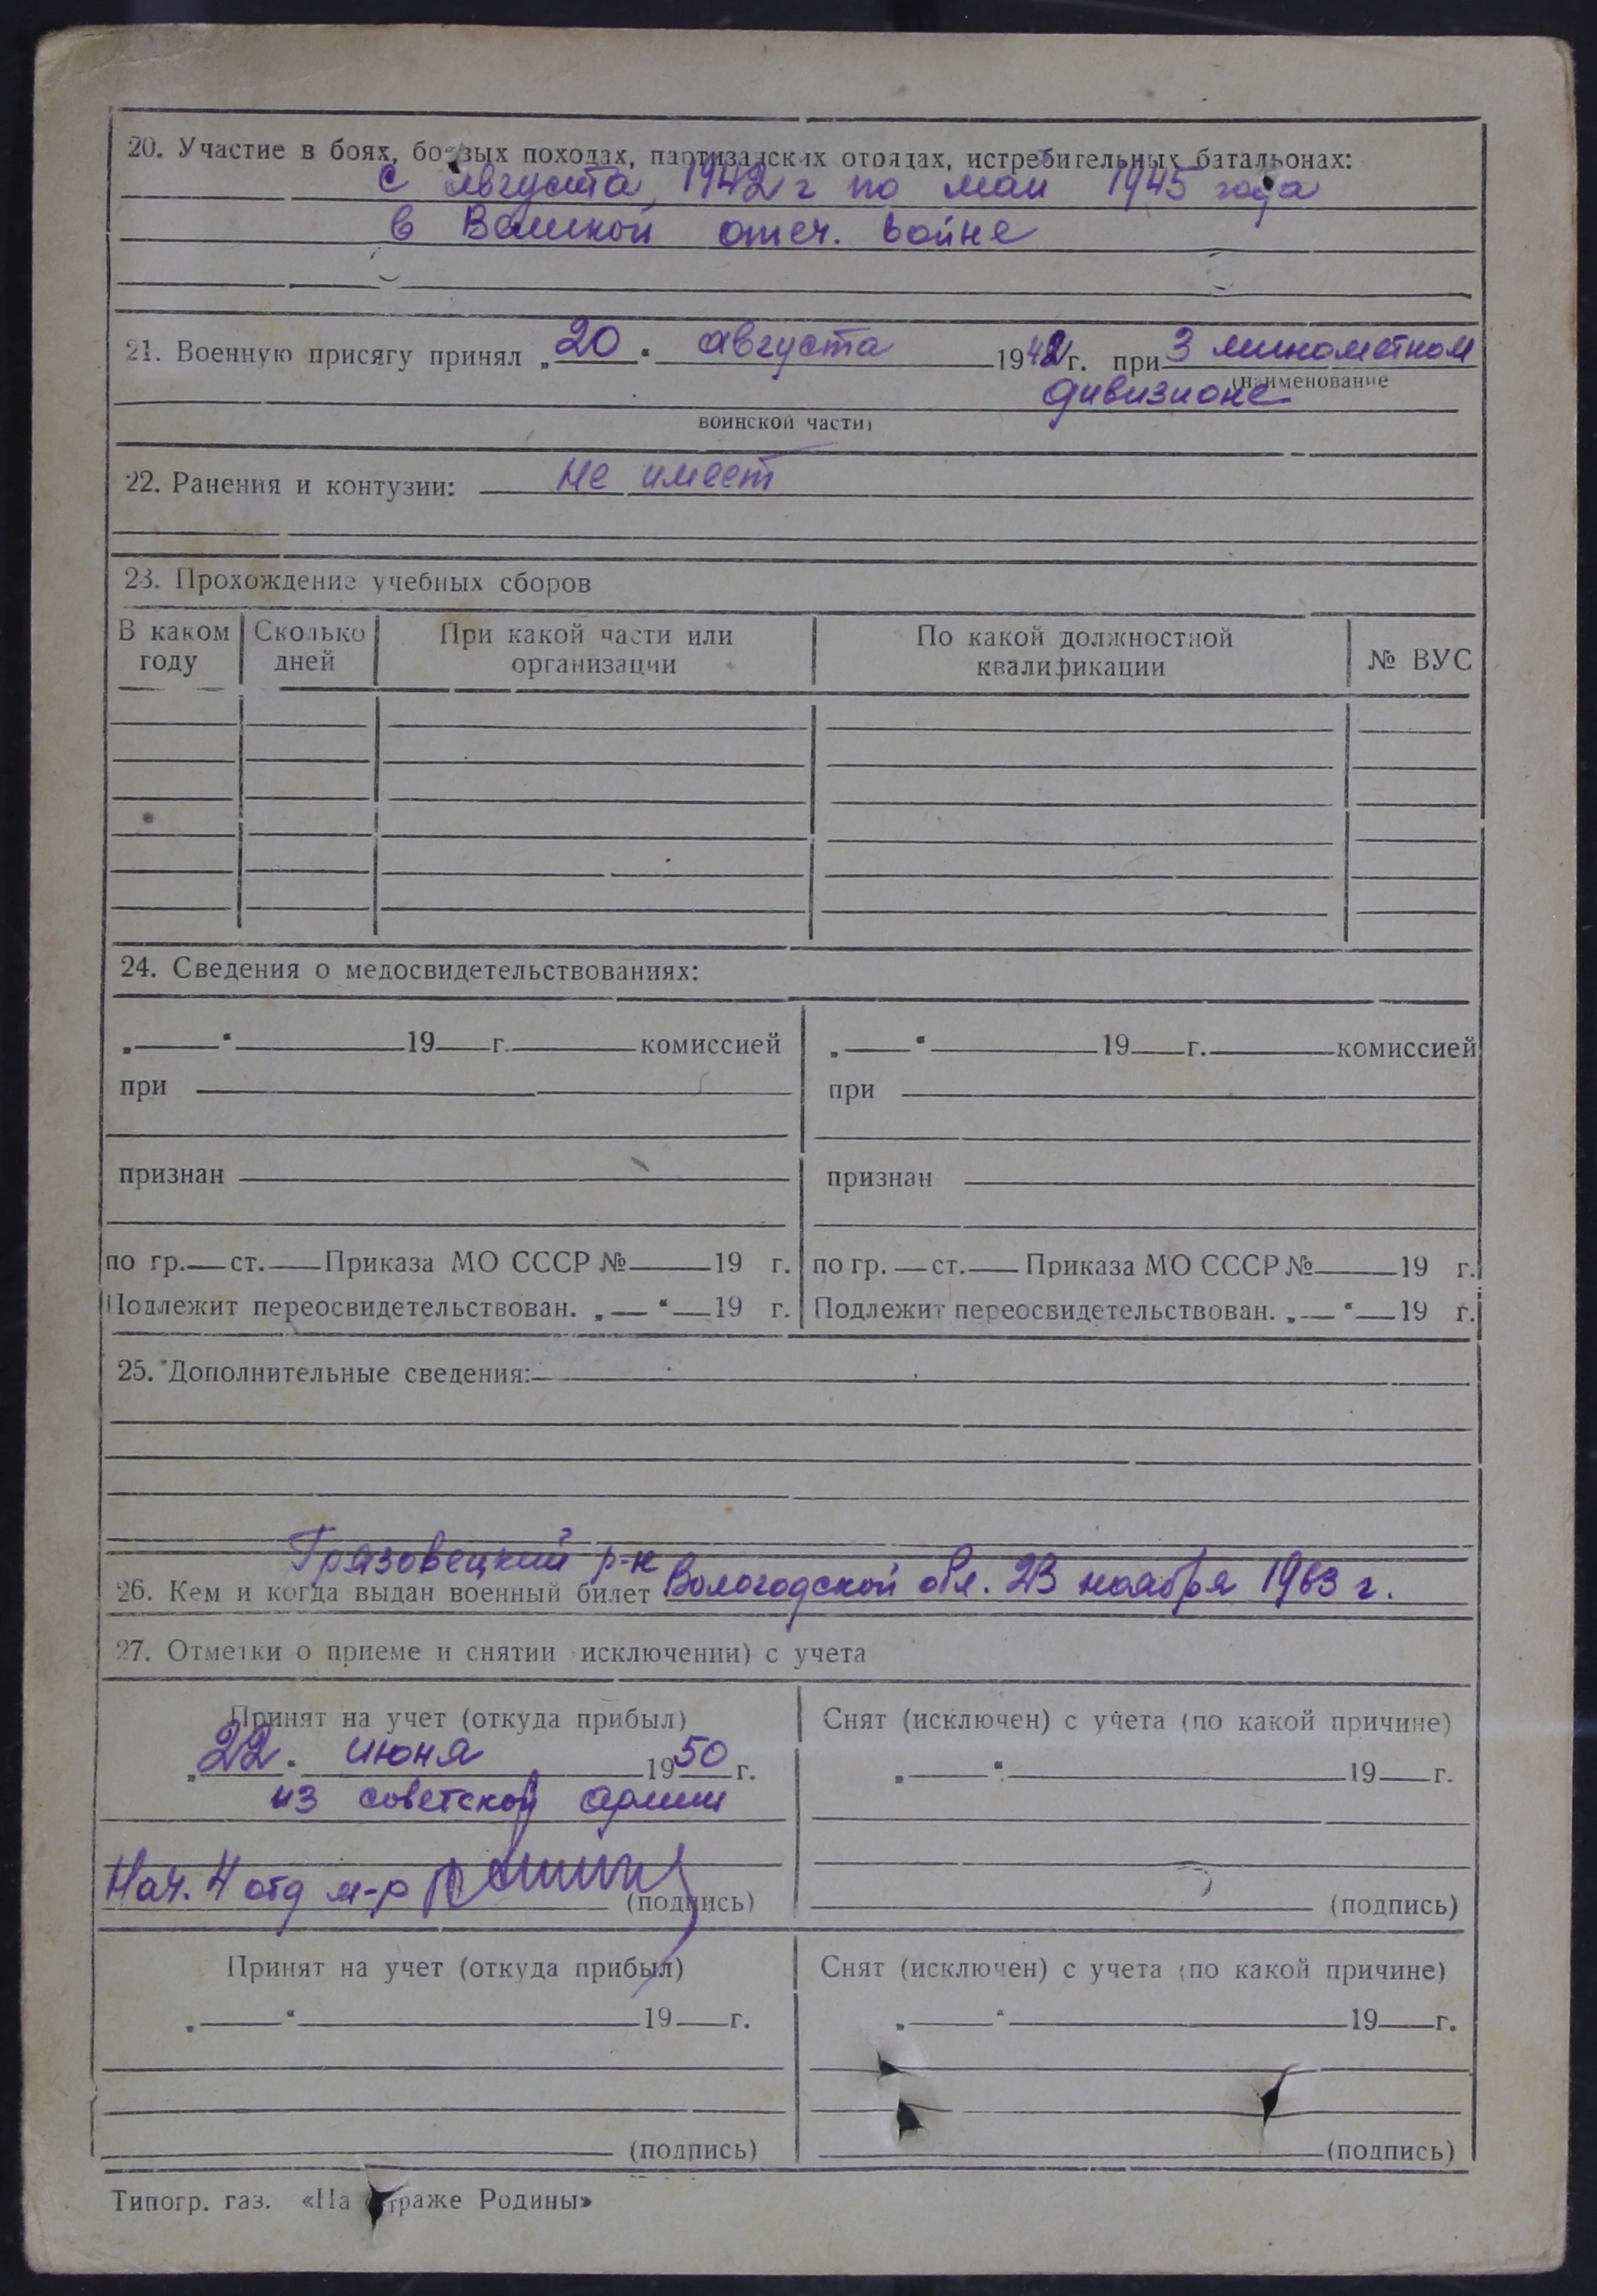 20. Участие в боях, боевых походах, партизанских отрядах, истребительных батальонах:
с августа 1942 г по май 1945 года
в Великой отеч. войне
21. Военную присягу принял „20" августа 1942 г. при 3 минометном
(наименование
дивизионе
воинской части)
22. Ранения и контузии: не имеет
23. Прохождение учебных сборов
В каком году Сколько дней При какой части или организации По какой должностной квалификации № ВУС
24. Сведения о медосвидетельствованиях:
„ " 19 г. комиссией „ " 19 г. комиссией
при при
признан признан
по гр. ст. Приказа МО СССР № 19 г. по гр. ст. Приказа МО СССР № 19 г.
Подлежит переосвидетельствован. „ " 19 г. Подлежит переосвидетельствован. „ " 19 г.
25. Дополнительные сведения:
Грязовецкий р-н
26. Кем и когда выдан военный билет Вологодской обл. 23 ноября 1963 г.
27. Отметки о приеме и снятии исключении) с учета
Принят на учет (откуда прибыл) Снят (исключен) с учета (по какой причине)
„22" июня 1950 г. „ " 19 г.
из советской армии
Нач. 4 отд м-р (подпись) (подпись)
Принят на учет (откуда прибыл) Снят (исключен) с учета (по какой причине)
„ " 19 г. „ " 19 г.
(подпись) (подпись)
Типогр. газ. «На страже Родины»